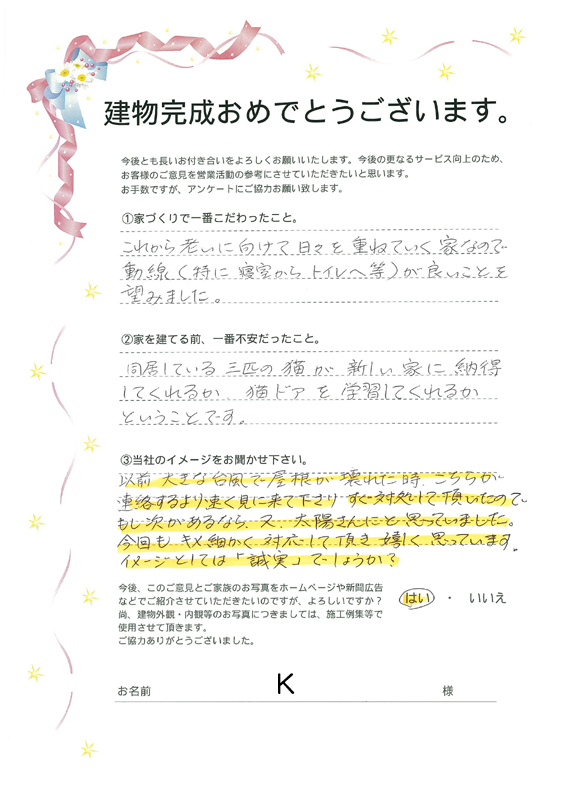 建物完成おめでとうございます。
今後とも長いお付き合いをよろしくお願いいたします。今後の更なるサービス向上のため、
お客様のご意見を営業活動の参考にさせていただきたいと思います。
お手数ですが、アンケートにご協力お願い致します。
①家づくりで一番こだわったこと。
これから老いに向けて日々を重ねていく家なので
動線(特に寝室からトイレへ等)が良いことを
望みました。
②家を建てる前、一番不安だったこと。
同居している三匹の猫が新しい家に納得
してくれるか、猫ドアを学習してくれるか
ということです。
③当社のイメージをお聞かせ下さい。
以前大きな台風で屋根が壊れた時、こちらが
連絡するより速く見に来て下さりすぐ対処して頂いたので
もし次があるなら、又、太陽さんにと思っていました。
今回もキメ細かく対応して頂き嬉しく思っています。
イメージとしては「誠実」でしょうか?
今後、このご意見とご家族のお写真をホームページや新聞広告
などでご紹介させていただきたいのですが、よろしいですか?
はい ・ いいえ
尚、建物外観・内観等のお写真につきましては、施工例集等で
使用させて頂きます。
ご協力ありがとうございました。
お名前 K 様